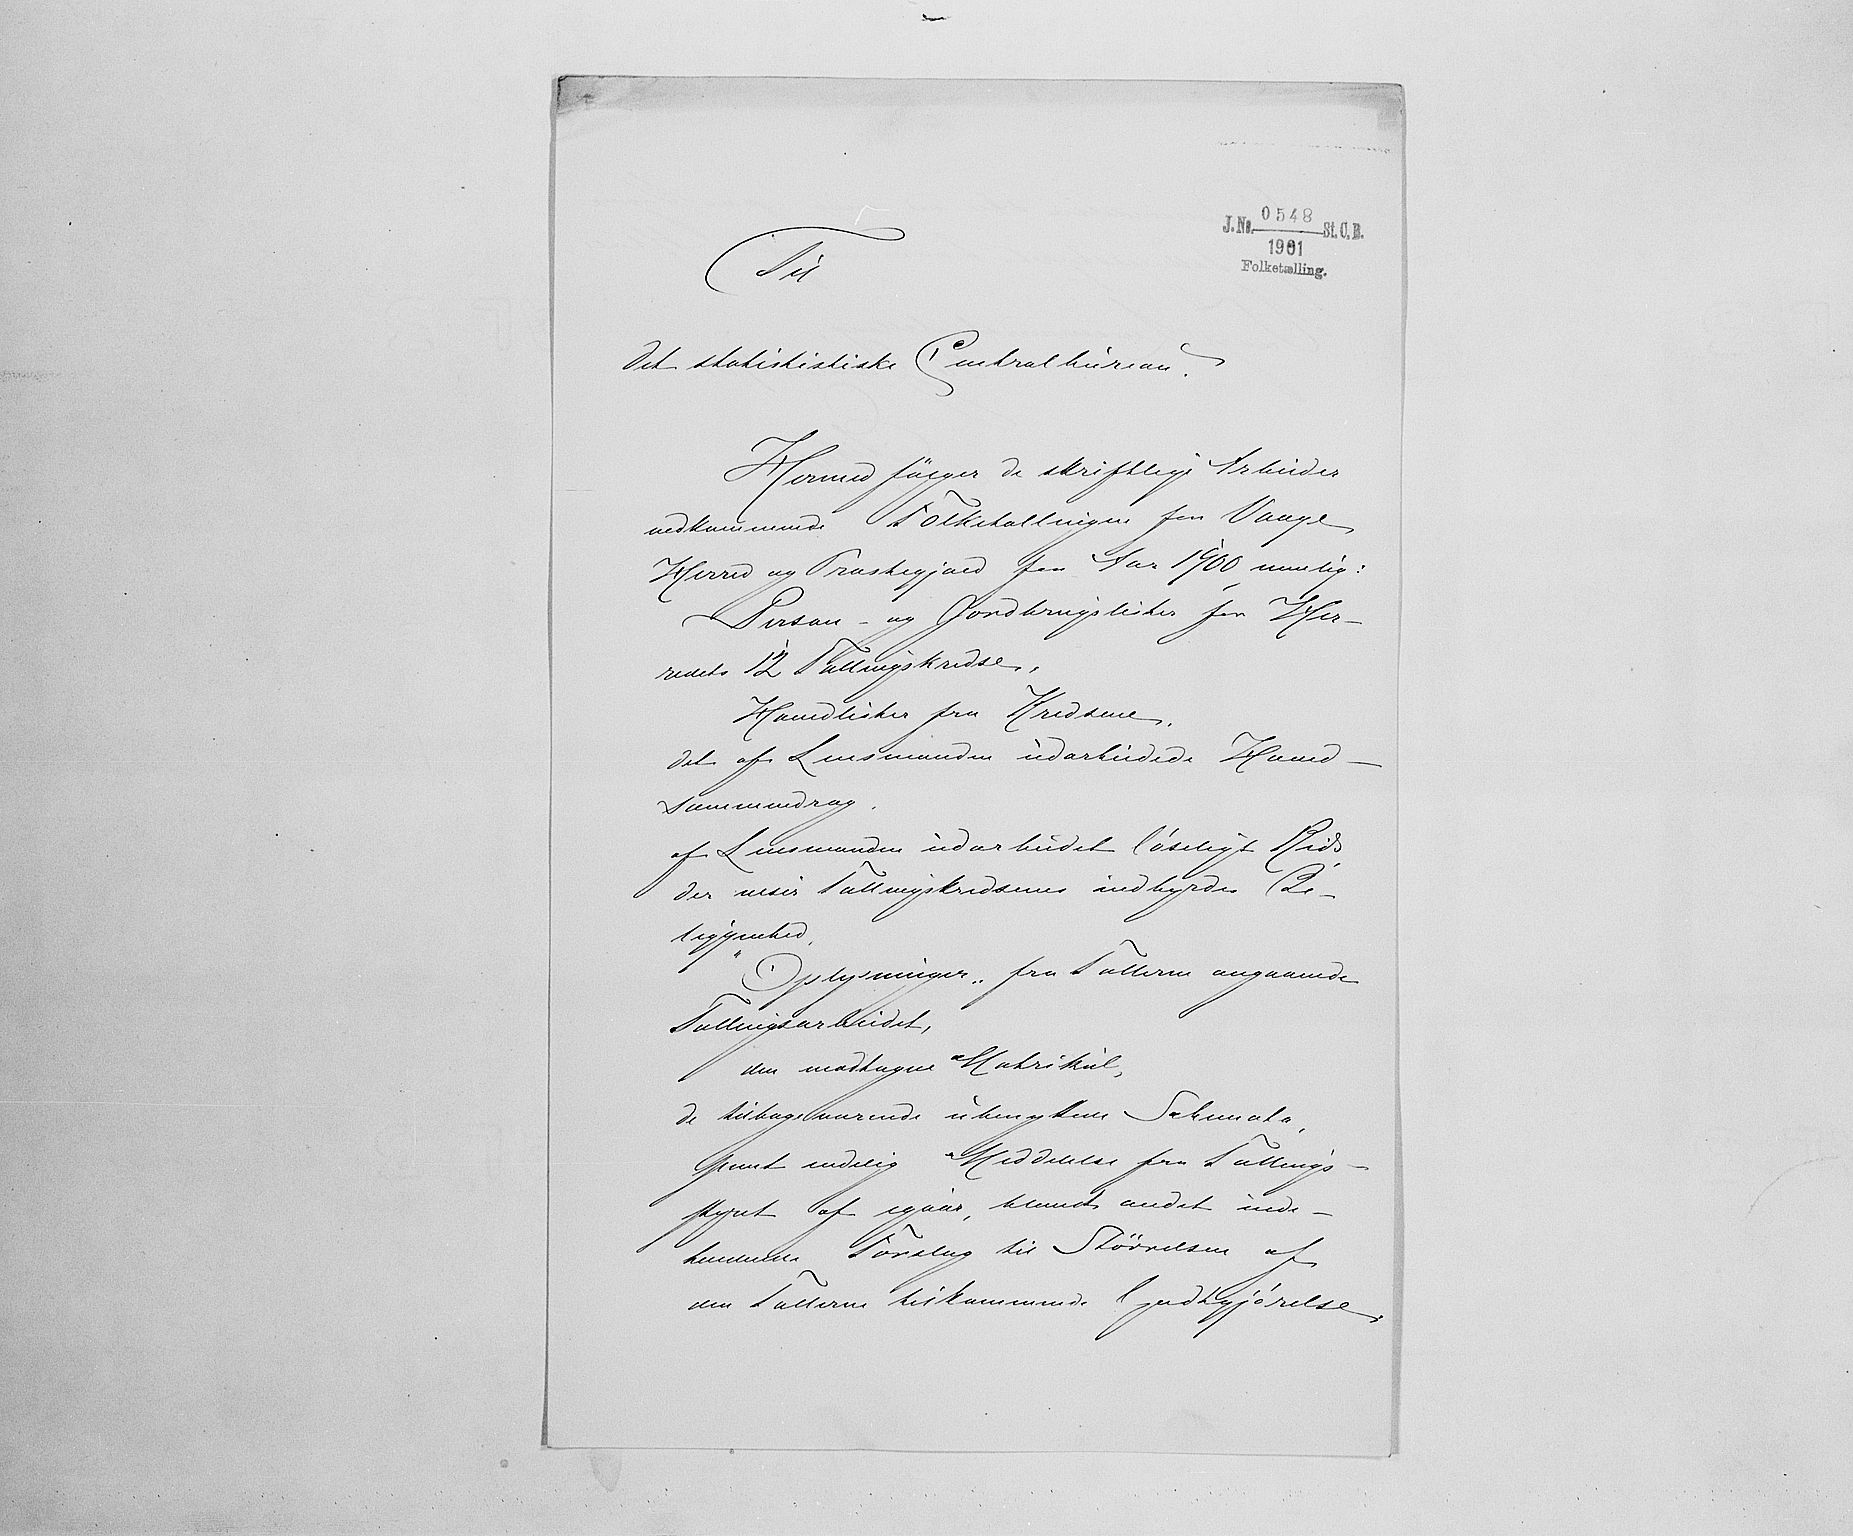 J. No. 0548 St. C. B.
1901
Folketælling.
Til
det statististiske Centralbureau.
Hermed følger de skriftlige Arbeider
vedkommende Folketællingen for Vaage
Herred og Præstegjæld for Aar 1900 nemlig:
Person- og Jordbrugslister for Her-
redets 12 Tællingskredse,
Hovedlister fra Kredsene,
det af Lensmanden udarbeidede Hoved-
sammendrag.
af Lensmanden udarbeidet løseligt Rids
der viser Tællingskredsenes indbyrdes Be-
liggenhed,
"Oplysninger" fra Tællerne angaaende
Tællingsarbeidet,
den modtagne Matrikul,
de tilbageværende ubenyttede Schemata,
samt endelig Meddelelse fra Tællings-
styret af igaar, blandt andet inde-
holdende Forslag til Størrelsen af
den Tællerne tilkommende Godtgjørelse.